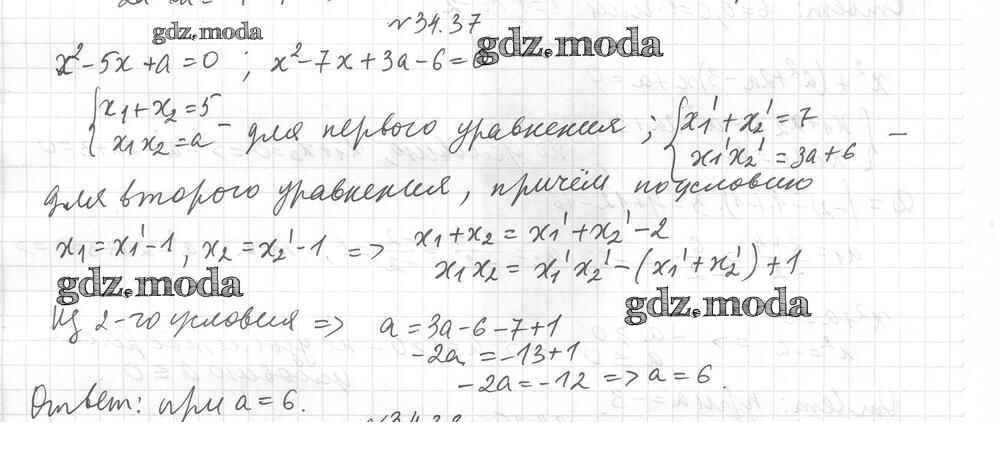 №34.37
gdz.moda
gdz.moda
x²-5x+a=0 ; x²-7x+3a-6=0
{x₁+x₂=5
x₁x₂=a – для первого уравнения; {x₁'+x₂'=7
x₁'x₂'=3a+6 –
для второго уравнения, причём по условию
x₁=x₁'-1, x₂=x₂'-1 => x₁+x₂=x₁'+x₂'-2
x₁x₂=x₁'x₂'-(x₁'+x₂')+1
gdz.moda
gdz.moda
Из 2-го условия => a=3a-6-7+1
-2a=-13+1
-2a=-12 => a=6.
Ответ: при a=6.